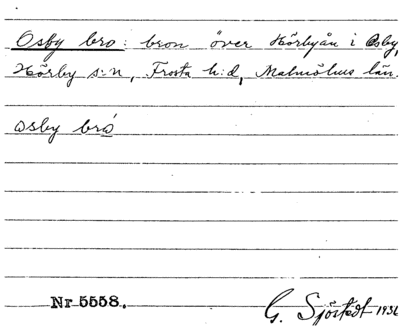 Osby bro: bron över Hörbyån i Osby,
Hörby s:n, Frosta h:d, Malmöhus län.
osby bró
Nr 5558.
G. Sjöstedt 1936